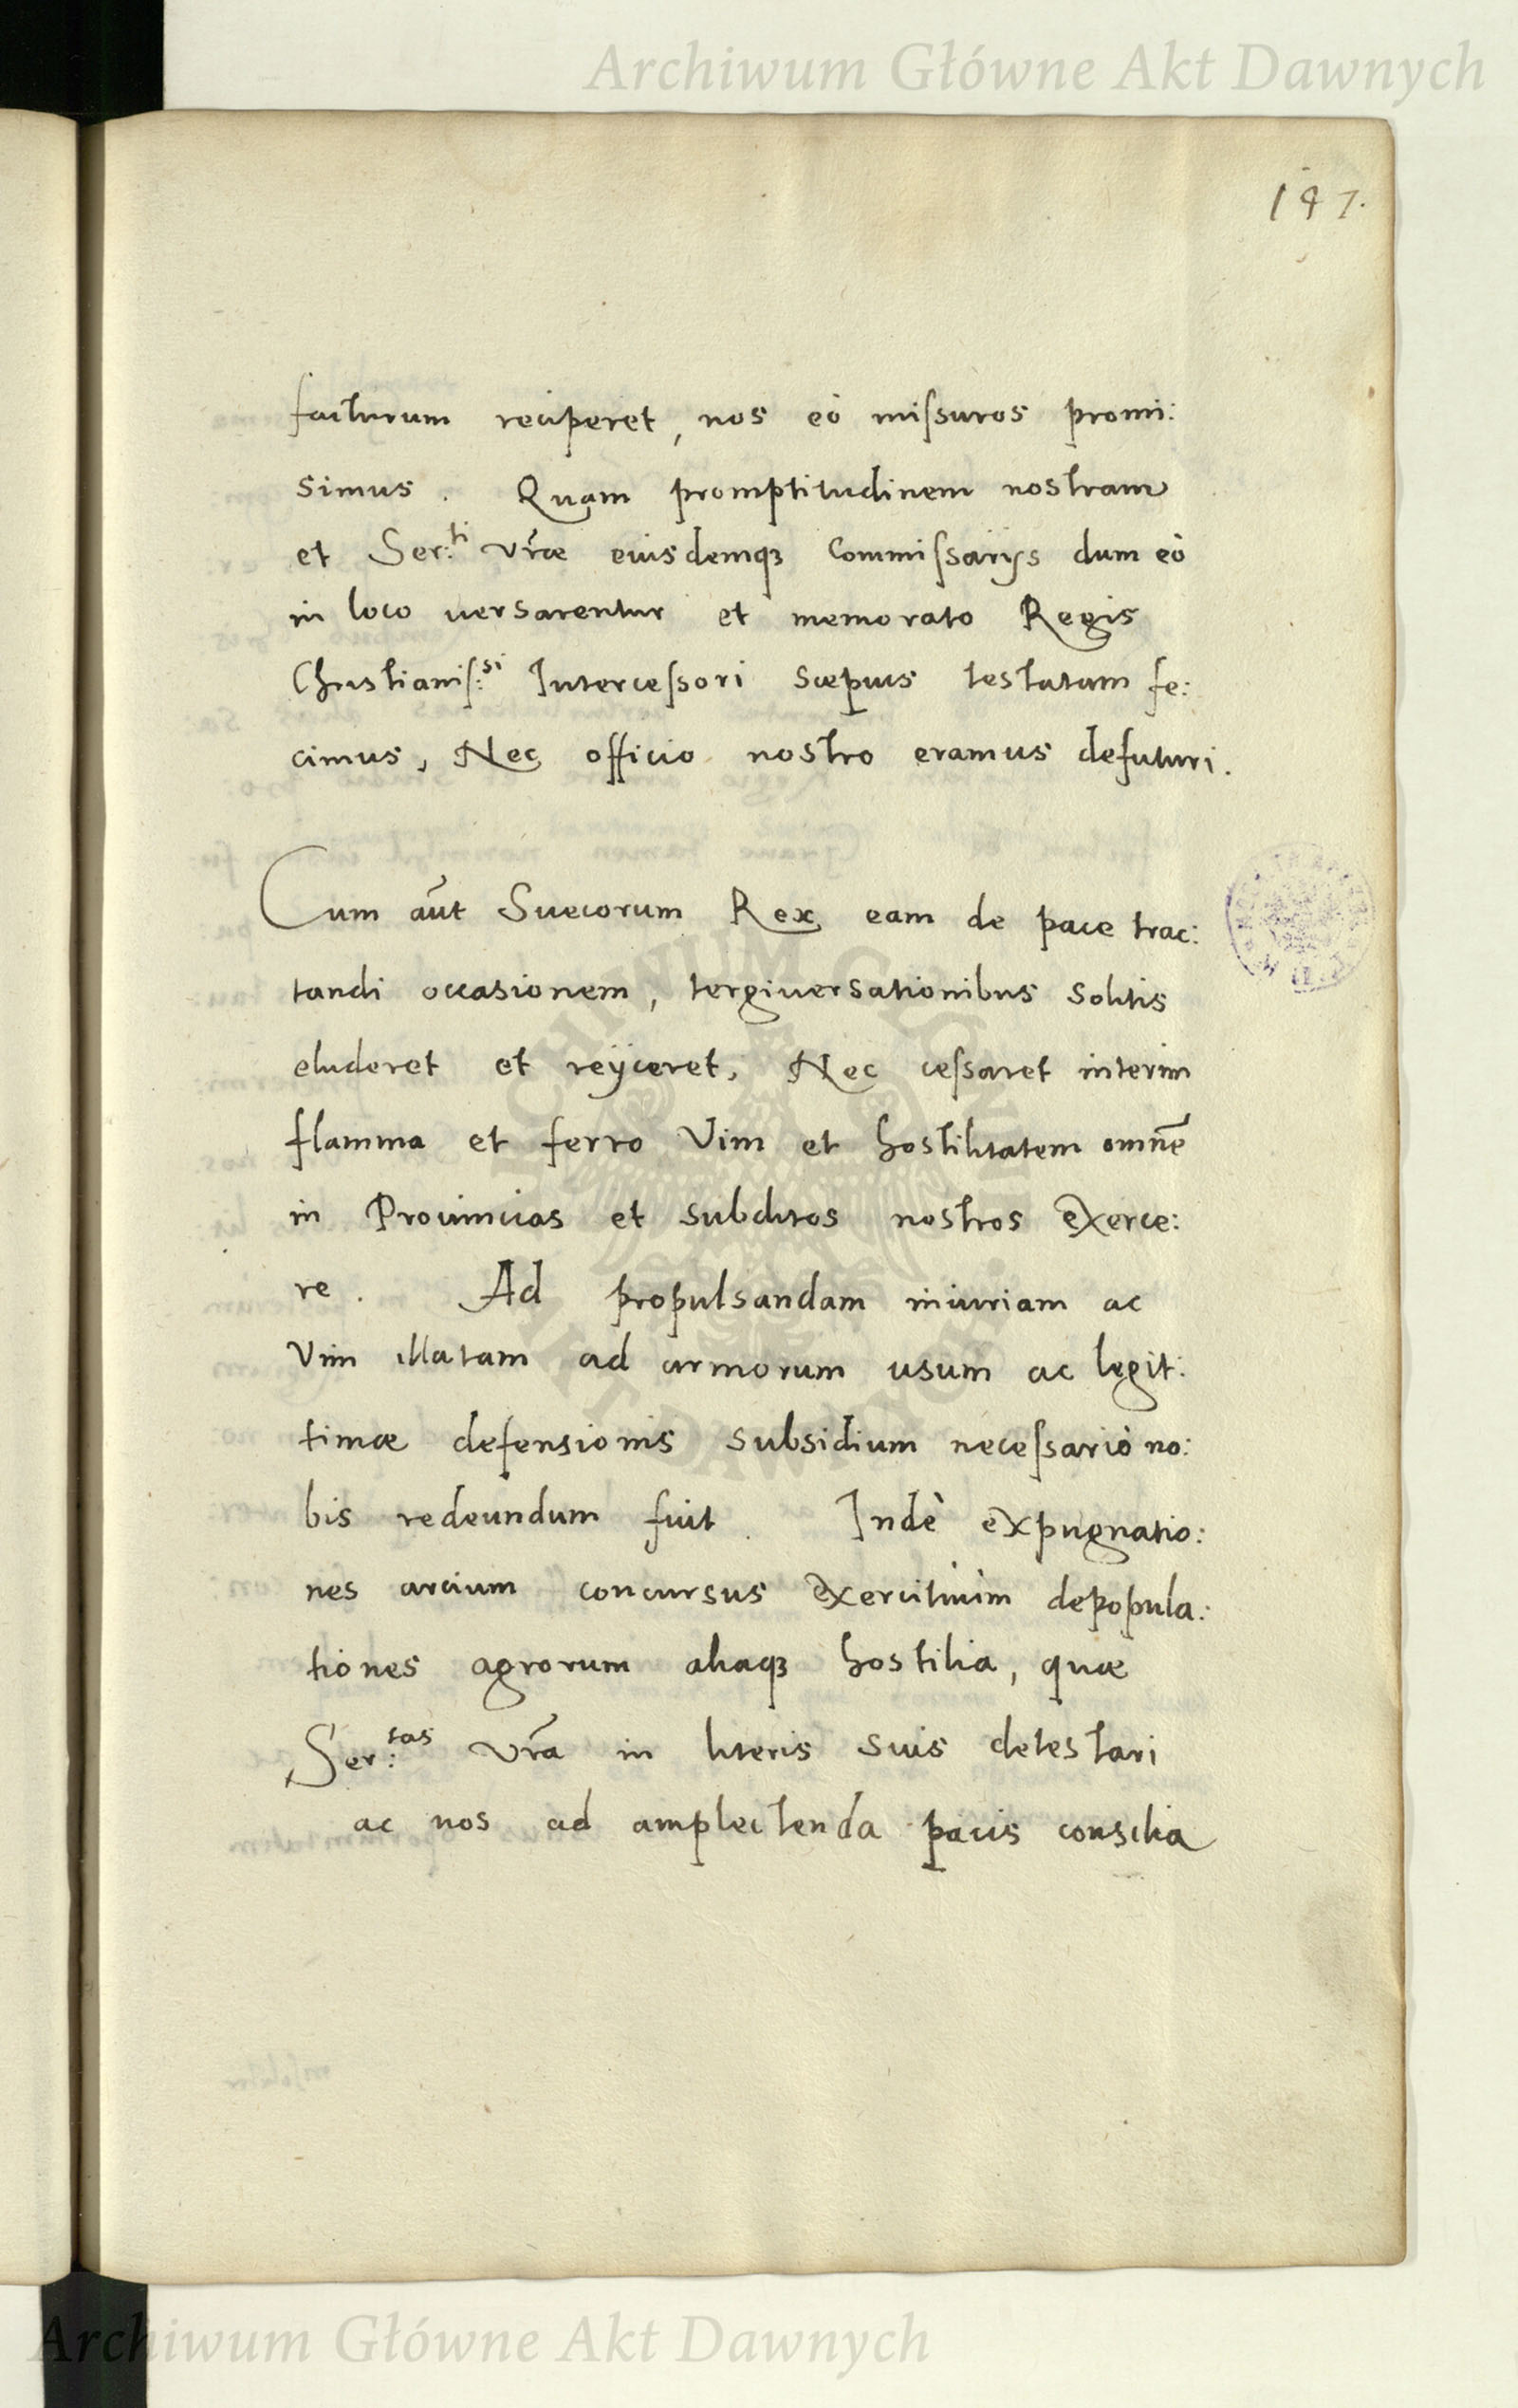 Archiwum Główne Akt Dawnych
147.
facturum reciperet, nos eò mißuros promi:
simus. Quam promptitudinem nostram
et Ser:ti Vr̃æ eiusdemqꝫ Commißarijs dum eò
in loco uersarentur et memorato Regis
Christianiſ:si Interceßori sæpius testatam fe:
cimus, Nec officio nostro eramus defuturi.
Cum aũt Suecorum Rex eam de pace trac:
tandi occasionem, tergiuersationibus solitis
eluderet et reijceret, Nec ceßaret interim
flamma et ferro Vim et hostilitatem omnẽ
in Prouincias et subditos nostros exerce:
re. Ad propulsandam iniuriam ac
Vim illatam ad armorum usum ac legit:
timæ defensionis subsidium neceßariò no:
bis redeundum fuit. Indè expugnatio:
nes arcium concursus exercituum depopula:
tiones agrorum aliaqꝫ hostilia, quæ
Ser:tas Vr̃a in literis suis detestari
ac nos ad amplectenda pacis consilia
ARCHIWUM GŁÓWNE AKT DAWNYCH
Archiwum Główne Akt Dawnych